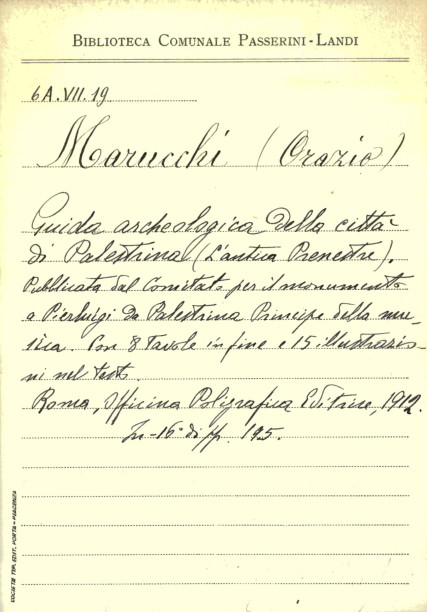 BIBLIOTECA COMUNALE PASSERINI-LANDI
6A.VII.19
Marucchi (Orazio)
Guida archeologica della città
di Palestrina (L'antica Preneste).
Pubblicata dal Comitato per il monumento
a Pierluigi da Palestrina Principe della mu-
sica. Con 8 tavole in fine e 15 illustrazio-
ni nel testo.
Roma, Officina Poligrafica Editrice, 1912.
In-16° di pp. 195.
SOCIETÀ TIP. EDIT. PORTA - PIACENZA